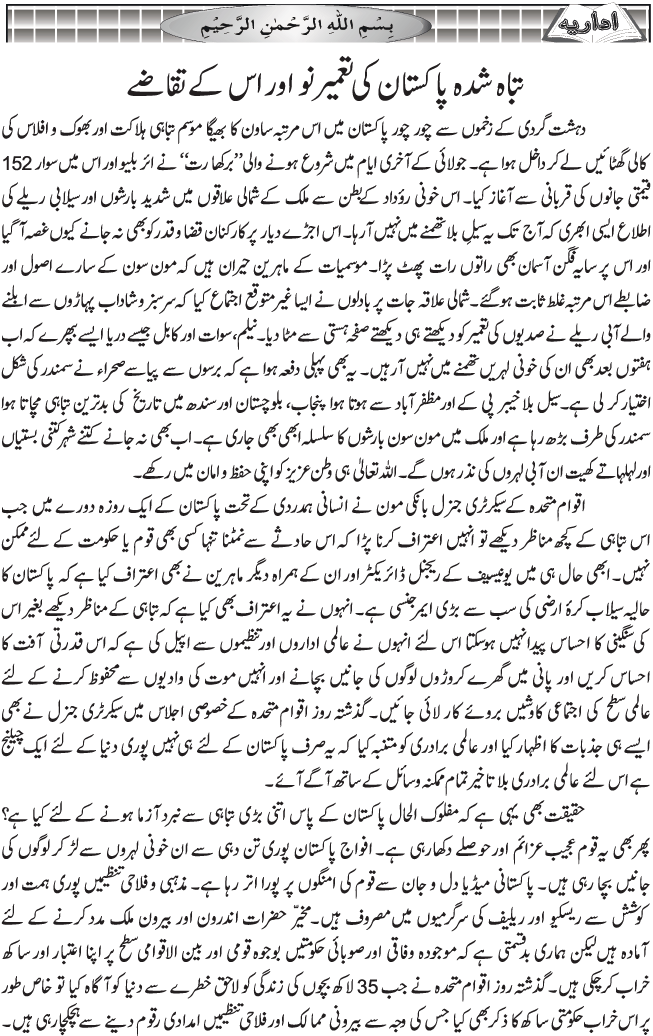 اداریہ
بِسْمِ اللهِ الرَّحْمٰنِ الرَّحِيْمِ
تباہ شدہ پاکستان کی تعمیر نو اور اس کے تقاضے
دہشت گردی کے زخموں سے چور چور پاکستان میں اس مرتبہ ساون کا بھیگا موسم تباہی ہلاکت اور بھوک و افلاس کی
کالی گھٹائیں لے کر داخل ہوا ہے۔ جولائی کے آخری ایام میں شروع ہونے والی ’’برکھا رت‘‘ نے ائر بلیو اور اس میں سوار 152
قیمتی جانوں کی قربانی سے آغاز کیا۔ اس خونی رؤداد کے بطن سے ملک کے شمالی علاقوں میں شدید بارشوں اور سیلابی ریلے کی
اطلاع ایسی ابھری کہ آج تک یہ سیل بلا تھمنے میں نہیں آرہا۔ اس اجڑے دیار پر کارکنان قضا و قدر کو بھی نہ جانے کیوں غصہ آگیا
اور اس پر سایہ فگن آسمان بھی راتوں رات پھٹ پڑا۔ موسمیات کے ماہرین حیران ہیں کہ مون سون کے سارے اصول اور
ضابطے اس مرتبہ غلط ثابت ہوگئے۔ شمالی علاقہ جات پر بادلوں نے ایسا غیر متوقع اجتماع کیا کہ سرسبز و شاداب پہاڑوں سے ابلنے
والے آبی ریلے نے صدیوں کی تعمیر کو دیکھتے ہی دیکھتے صفحہ ہستی سے مٹا دیا۔ نیلم، سوات اور کابل جیسے دریا ایسے بپھرے کہ اب
ہفتوں بعد بھی ان کی خونی لہریں تھمنے میں نہیں آرہیں۔ یہ بھی پہلی دفعہ ہوا ہے کہ برسوں سے پیاسے صحراء نے سمندر کی شکل
اختیار کر لی ہے۔ سیل بلا خیبر پی کے اور مظفر آباد سے ہوتا ہوا پنجاب، بلوچستان اور سندھ میں تاریخ کی بدترین تباہی مچاتا ہوا
سمندر کی طرف بڑھ رہا ہے اور ملک میں مون سون بارشوں کا سلسلہ ابھی بھی جاری ہے۔ اب بھی نہ جانے کتنے شہر کتنی بستیاں
اور لہلہاتے کھیت ان آبی لہروں کی نذر ہوں گے۔ اللہ تعالیٰ ہی وطن عزیز کو اپنی حفظ و امان میں رکھے۔
اقوام متحدہ کے سیکرٹری جنرل بانکی مون نے انسانی ہمدردی کے تحت پاکستان کے ایک روزہ دورے میں جب
اس تباہی کے کچھ مناظر دیکھے تو انہیں اعتراف کرنا پڑا کہ اس حادثے سے نمٹنا تنہا کسی بھی قوم یا حکومت کے لئے ممکن
نہیں۔ ابھی حال ہی میں یونیسیف کے ریجنل ڈائریکٹر اور ان کے ہمراہ دیگر ماہرین نے بھی اعتراف کیا ہے کہ پاکستان کا
حالیہ سیلاب کرۂ ارضی کی سب سے بڑی ایمرجنسی ہے۔ انہوں نے یہ اعتراف بھی کیا ہے کہ تباہی کے مناظر دیکھے بغیر اس
کی سنگینی کا احساس پیدا نہیں ہوسکتا اس لئے انہوں نے عالمی اداروں اور تنظیموں سے اپیل کی ہے کہ اس قدرتی آفت کا
احساس کریں اور پانی میں گھرے کروڑوں لوگوں کی جانیں بچانے اور انہیں موت کی وادیوں سے محفوظ کرنے کے لئے
عالمی سطح کی اجتماعی کاوشیں بروئے کار لائی جائیں۔ گذشتہ روز اقوام متحدہ کے خصوصی اجلاس میں سیکرٹری جنرل نے بھی
ایسے ہی جذبات کا اظہار کیا اور عالمی برادری کو متنبہ کیا کہ یہ صرف پاکستان کے لئے ہی نہیں پوری دنیا کے لئے ایک چیلنج
ہے اس لئے عالمی برادری بلا تاخیر تمام ممکنہ وسائل کے ساتھ آگے آئے۔
حقیقت بھی یہی ہے کہ مفلوک الحال پاکستان کے پاس اتنی بڑی تباہی سے نبرد آزما ہونے کے لئے کیا ہے؟
پھر بھی یہ قوم عجیب عزائم اور حوصلے دکھا رہی ہے۔ افواج پاکستان پوری تن دہی سے ان خونی لہروں سے لڑ کر لوگوں کی
جانیں بچا رہی ہیں۔ پاکستانی میڈیا دل و جان سے قوم کی امنگوں پر پورا اتر رہا ہے۔ مذہبی و فلاحی تنظیمیں پوری ہمت اور
کوشش سے ریسکیو اور ریلیف کی سرگرمیوں میں مصروف ہیں۔ مخیّر حضرات اندرون اور بیرون ملک مدد کرنے کے لئے
آمادہ ہیں لیکن ہماری بدقسمتی ہے کہ موجودہ وفاقی اور صوبائی حکومتیں بوجوہ قومی اور بین الاقوامی سطح پر اپنا اعتبار اور ساکھ
خراب کر چکی ہیں۔ گذشتہ روز اقوام متحدہ نے جب 35 لاکھ بچوں کی زندگی کو لاحق خطرے سے دنیا کو آگاہ کیا تو خاص طور
پر اس خراب حکومتی ساکھ کا ذکر بھی کیا جس کی وجہ سے بیرونی ممالک اور فلاحی تنظیمیں امدادی رقوم دینے سے ہچکچا رہی ہیں۔